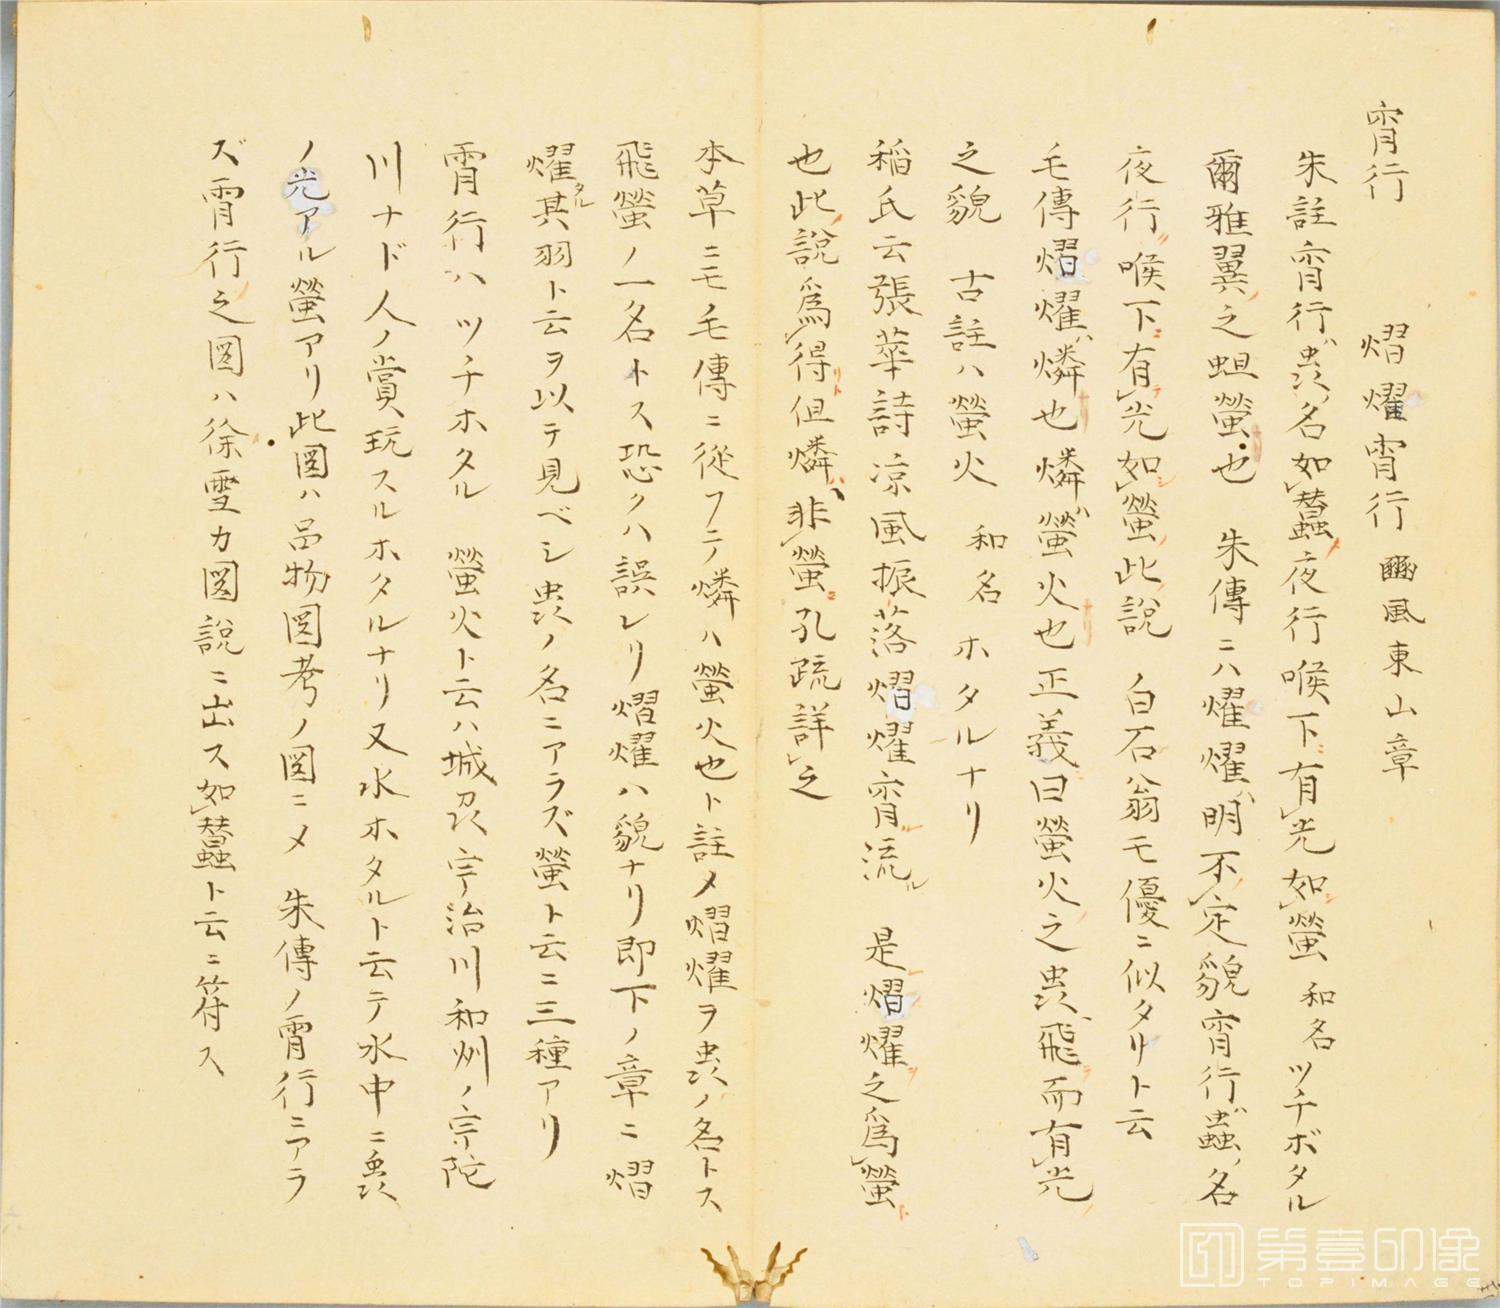 宵行　熠燿宵行 豳風東山章
朱註宵行蟲名如蠶夜行喉下有光如螢 和名ツチボタル
爾雅翼之蛆螢也 朱傳ニハ燿燿ハ明不定貌宵行蟲ノ名
夜行喉下有光如螢此説 白石翁モ優ニ似タリト云
毛傳熠燿ハ燐也燐ハ螢火也正義曰螢火之蟲飛而有光
之貌 古註ハ螢火 和名ホタルナリ
稲氏云張華詩凉風振落熠燿宵流ル 是熠燿之爲螢
也此説爲得但燐ハ非螢孔疏詳之
本草ニモ毛傳ニ從フテ燐ハ螢火也ト註メ熠燿ヲ蟲ノ名トス
飛螢ノ一名トス恐クハ誤レリ熠燿ハ貌ナリ即下ノ章ニ熠
燿タル其羽ト云ヲ以テ見ベシ蟲ノ名ニアラズ螢ト云ニ三種アリ
宵行ハツチホタル 螢火ト云ハ城及宇治川和州ノ宇陀
川ナド人ノ賞玩スルホタルナリ又水ホタルト云テ水中ニ蟲
ノ光アル螢アリ此圖ハ品物圖考ノ圖ニメ 朱傳ノ宵行ニアラ
ズ宵行之圖ハ徐雪カ圖説ニ出ス如蠶ト云ニ符ス
第壹印像
TOPIMAGE